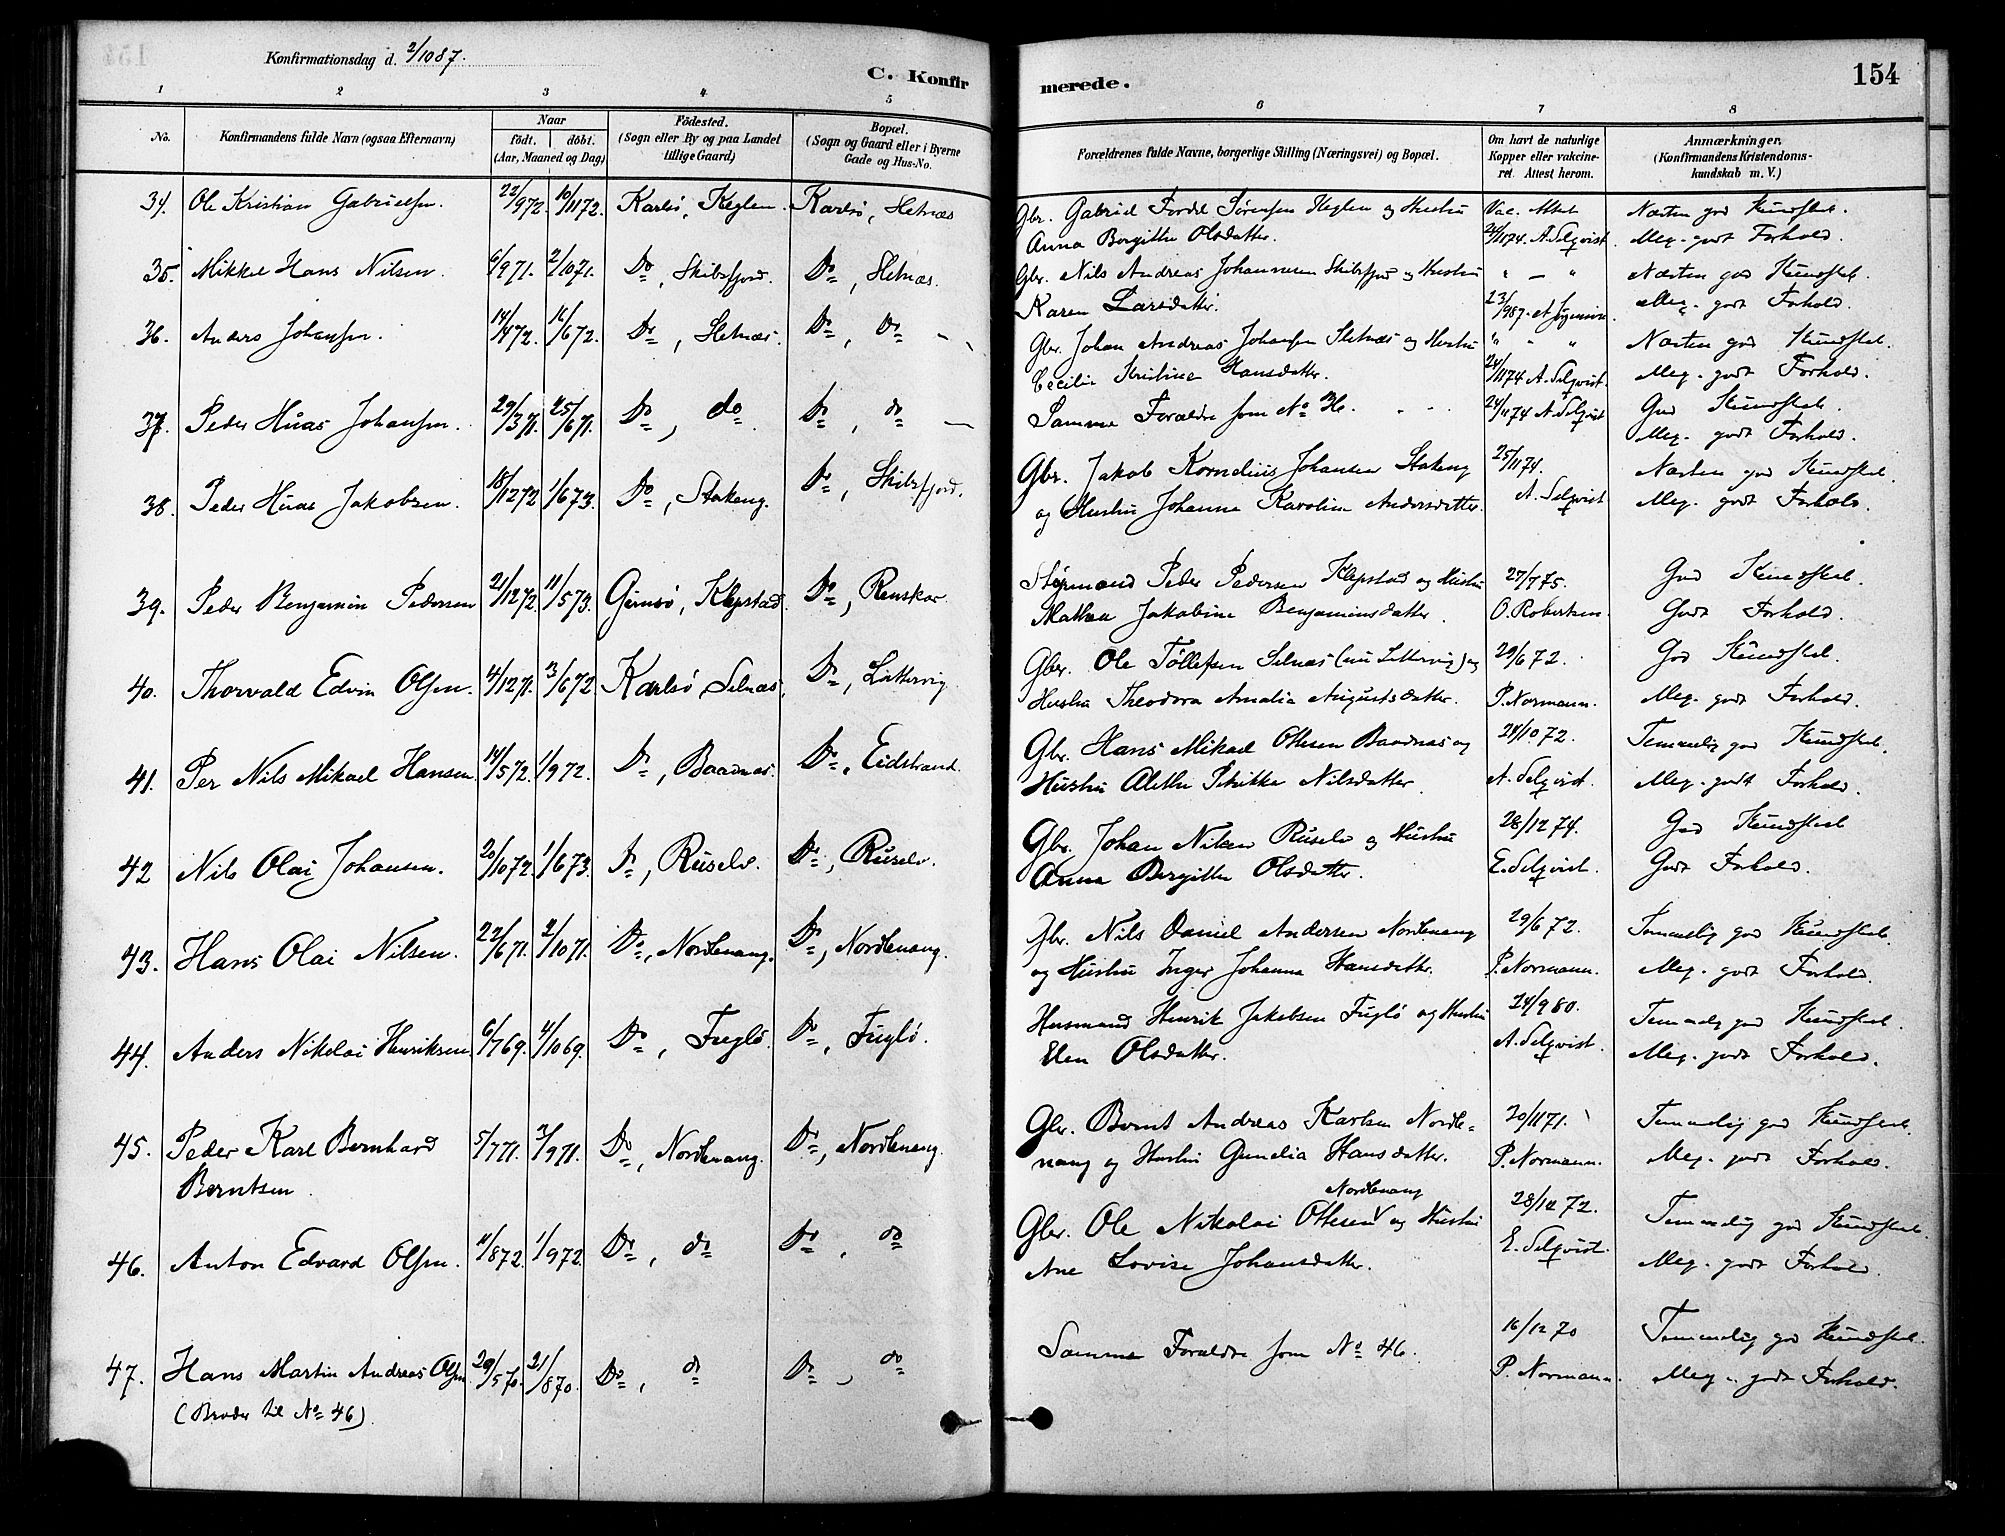 Konfirmationsdag d. 2/10 87.
C. Konfirmerede.
154
1 2 3 4 5 6 7 8
No. Konfirmandens fulde Navn (ogsaa Efternavn) Naar födt. döbt. (Aar, Maaned og Dag) Födested. (Sogn eller By og paa Landet tillige Gaard) Bopæl. (Sogn og Gaard eller i Byerne Gade og Hus-No. Forældrenes fulde Navne, borgerlige Stilling (Næringsvei) og Bopæl. Om havt de naturlige Kopper eller vakcineret. Attest herom. Anmærkninger. (Konfirmandens Kristendomskundskab m. V.)
34. Ole Kristian Gabrielsen. 22/9 72. 10/11 72. Karlsö, Karlsö, Sletnæs Gbr. Gabriel Sörensen og Hustru Vac. Attest Næsten god Kundskab.
Anna Bergitte Olsdatter. 24/11 74. A. Selqvist. Meg. godt Forhold.
35. Mikkel Hans Nilsen. 6/9 71. 2/10 71. Do, Skibsfjord. Do, Sletnæs. Gbr. Nils Andreas Johannesen Skibsfjord og Hustru " — " Næsten god Kundskab.
Karen Larsdatter. 23/9 87. Meg. godt Forhold.
36. Anders Johansen. 14/4 72. 16/6 72. Do, Sletnæs. Do, Do Gbr. Johan Andreas Johansen Sletnæs og Hustru " - " Næsten god Kundskab.
Cecilie Kristine Hansdatter. 24/11 74 A. Selqvist. Meg. godt Forhold.
37. Peder Hüas Johansen. 29/3 71. 25/6 71. Do, do. Do, do Samme Forældre som No 36. 24/11 74 A. Selqvist God Kundskab.
Meg. godt Forhold.
38. Peder Hüas Jakobsen. 18/12 72 1/6 73. Do, Stakeng. Do, Skibsfjord. Gbr. Jakob Kornelius Johansen Stakeng 25/11 74. Næsten god Kundskab.
og Hustru Johanna Karoline Andersdatter. A. Selqvist Meg. godt Forhold.
39. Peder Benjamin Pedersen 21/12 72. 11/5 73. Gimsö, Klepstad. Do, Renskar. Styrmand Peder Pedersen Klepstad og Hustru 27/7 75. God Kundskab.
Mathea Jakobine Benjaminsdatter. O. Robertsen. Godt Forhold.
40. Thorvald Edvin Olsen. 4/12 71. 3/6 72. Karlsö, Selnæs. Do, Littervig. Gbr. Ole Töllefsen Selnæs (nu Littervig) og 29/6 72. God Kundskab.
Hustru Theodora Amalia Augustsdatter. P. Normann. Meg. godt Forhold.
41. Per Nils Mikael Hansen 14/5 72. 1/9 72. Do, Baadnæs. Do, Eidstrand. Gbr. Hans Mikael Ottesen Baadnæs og 28/10 72. Temmelig god Kundskab.
Hustru Alethe Petrikke Nilsdatter. A. Selqvist. Meg. godt Forhold.
42 Nils Olai Johansen. 20/10 72. 1/6 73. Do, Ruselv. Do, Ruselv. Gbr. Johan Nilsen Ruselv og Hustru 28/12 74. God Kundskab
Anna Bergitte Olsdatter. E. Selqvist. Godt Forhold.
43. Hans Olai Nilsen. 22/6 71. 2/10 71. Do, Nordlenang. Do, Nordlenang. Gbr. Nils Daniel Andersen Nordlenang 29/6 72. Temmelig god Kundskab.
og Hustru Inger Johanna Hansdatter. P. Normann. Meg. godt Forhold.
44. Anders Nikolai Henriksen 6/7 69. 4/10 69. Do, Fuglö. Do, Fuglö. Husmand Henrik Jakobsen Fuglö og Hustru 24/9 80. Temmelig god Kundskab.
Elen Olsdatter. A. Selqvist. Meg. godt Forhold.
45. Peder Karl Bernhard 5/7 71. 3/9 71. Do, Nordlenang. Do, Nordlenang. Gbr. Bernt Andreas Karlsen Nordle- 20/11 71. Temmelig god Kundskab.
Berntsen. nang og Hustru Gunelia Hansdatter. P. Normann. Meg. godt Forhold.
Nordlenang
46. Anton Edvard Olsen. 11/8 72. 1/9 72. Do, do Do, do Gbr. Ole Nikolai Ottesen og Hustru 28/12 72. Temmelig god Kundskab.
Ane Lovise Johansdatter. E. Selqvist. Meg. godt Forhold.
47. Hans Martin Andreas Olsen 29/5 70. 21/8 70. Do, do Do, do Samme Forældre som No 46. 16/12 70 Temmelig god Kundskab.
(Broder til No 46). P. Normann. Meg. godt Forhold.